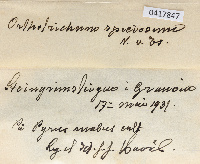 0417847
Orthotrichum speciosum
N. v. Es.
Steingrimstingua i Granvin
17 mai 1931.
På Pyrus malus cult
leg. et det.